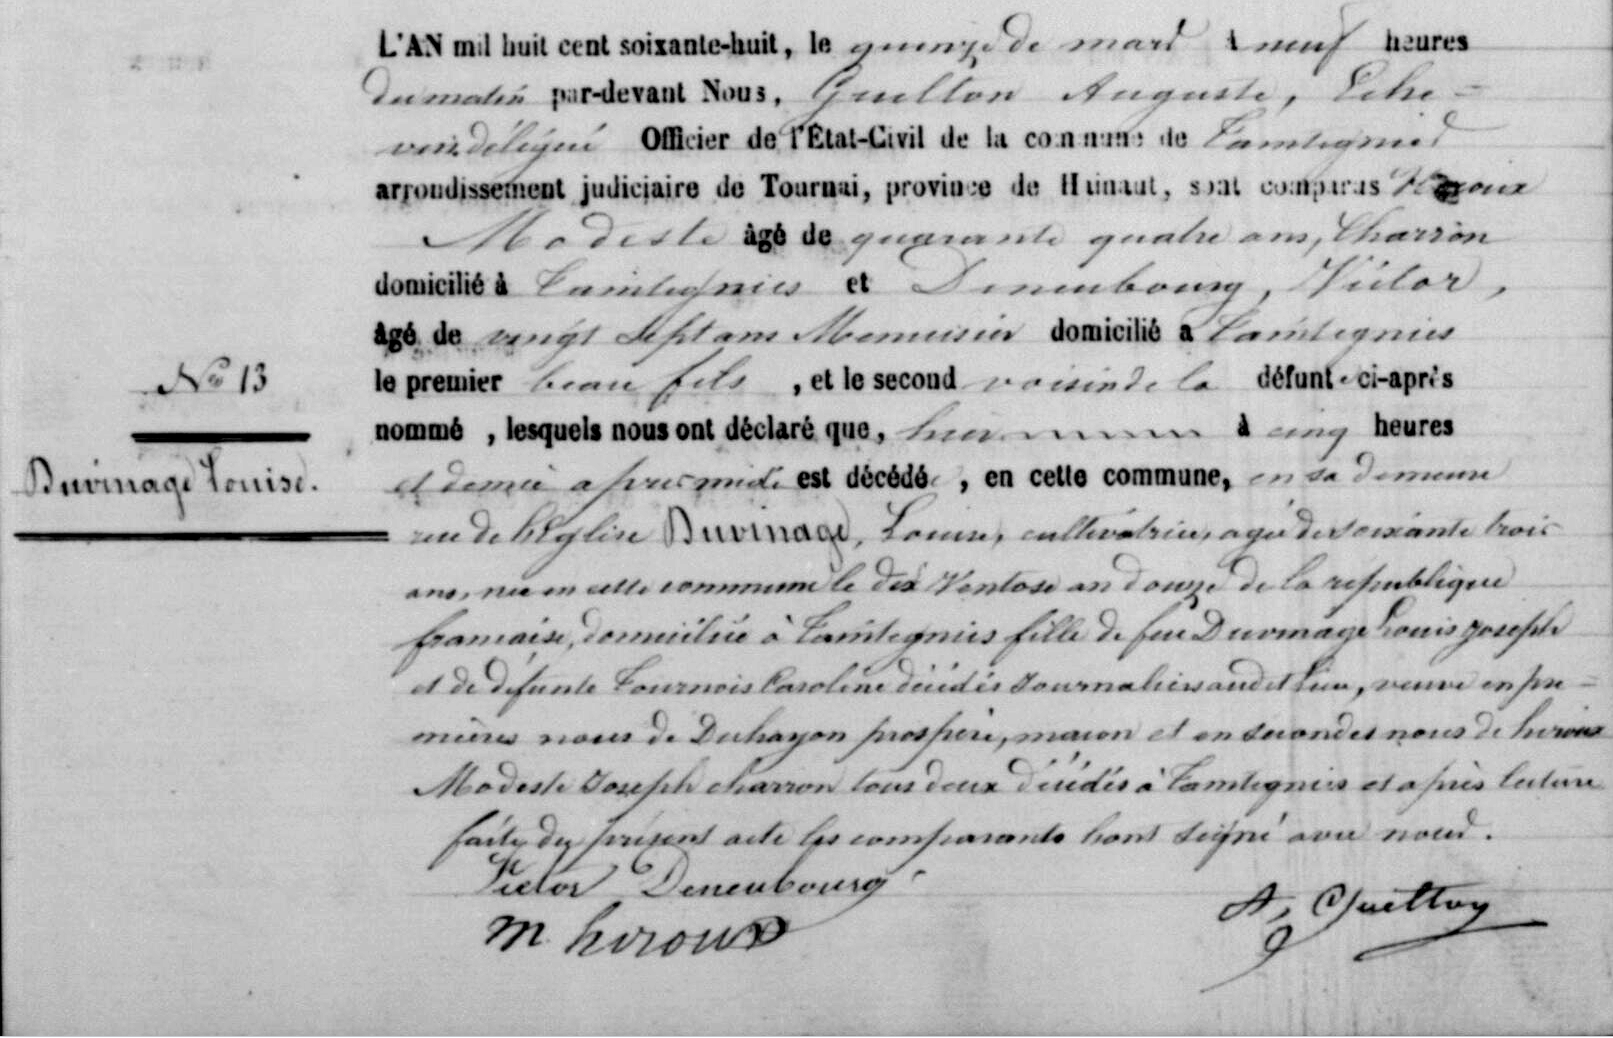 L'AN mil huit cent soixante-huit, le quinze de mars à neuf heures
du matin par-devant Nous, Quelton Auguste, Eche=
vin délégué Officier de l'État-Civil de la commune de Taintegnies
arrondissement judiciaire de Tournai, province de Hainaut, sont comparus Hiroux
Modeste âgé de quarante quatre ans, Charron
domicilié à Taintegnies et Deneubourg, Victor,
âgé de vingt sept ans Menuisier domicilié a Taintegnies
N° 13
le premier beau fils , et le second voisin de la défunte ci-après
nommé , lesquels nous ont déclaré que, hier à cinq heures
Duvinage Louise.
et demie après midi est décédée , en cette commune, en sa demeure
rue de l'Eglise Duvinage, Louise, cultivatrice, agée de soixante trois
ans, née en cette commune le dix Ventose an douze de la republique
francaise, domiciliée à Taintegnies fille de feu Duvinage Louis Joseph
et de défunte Tournois Caroline décédés Journaliers audit Lieu, veuve en pre=
mières noces de Duhayon prospère, macon et en secondes noces de hiroux
Modeste Joseph charron tous deux décédés à Taintegnies et après lecture
faite du présent acte les comparants l'ont signé avec nous.
Victor Deneubourg
m hiroux